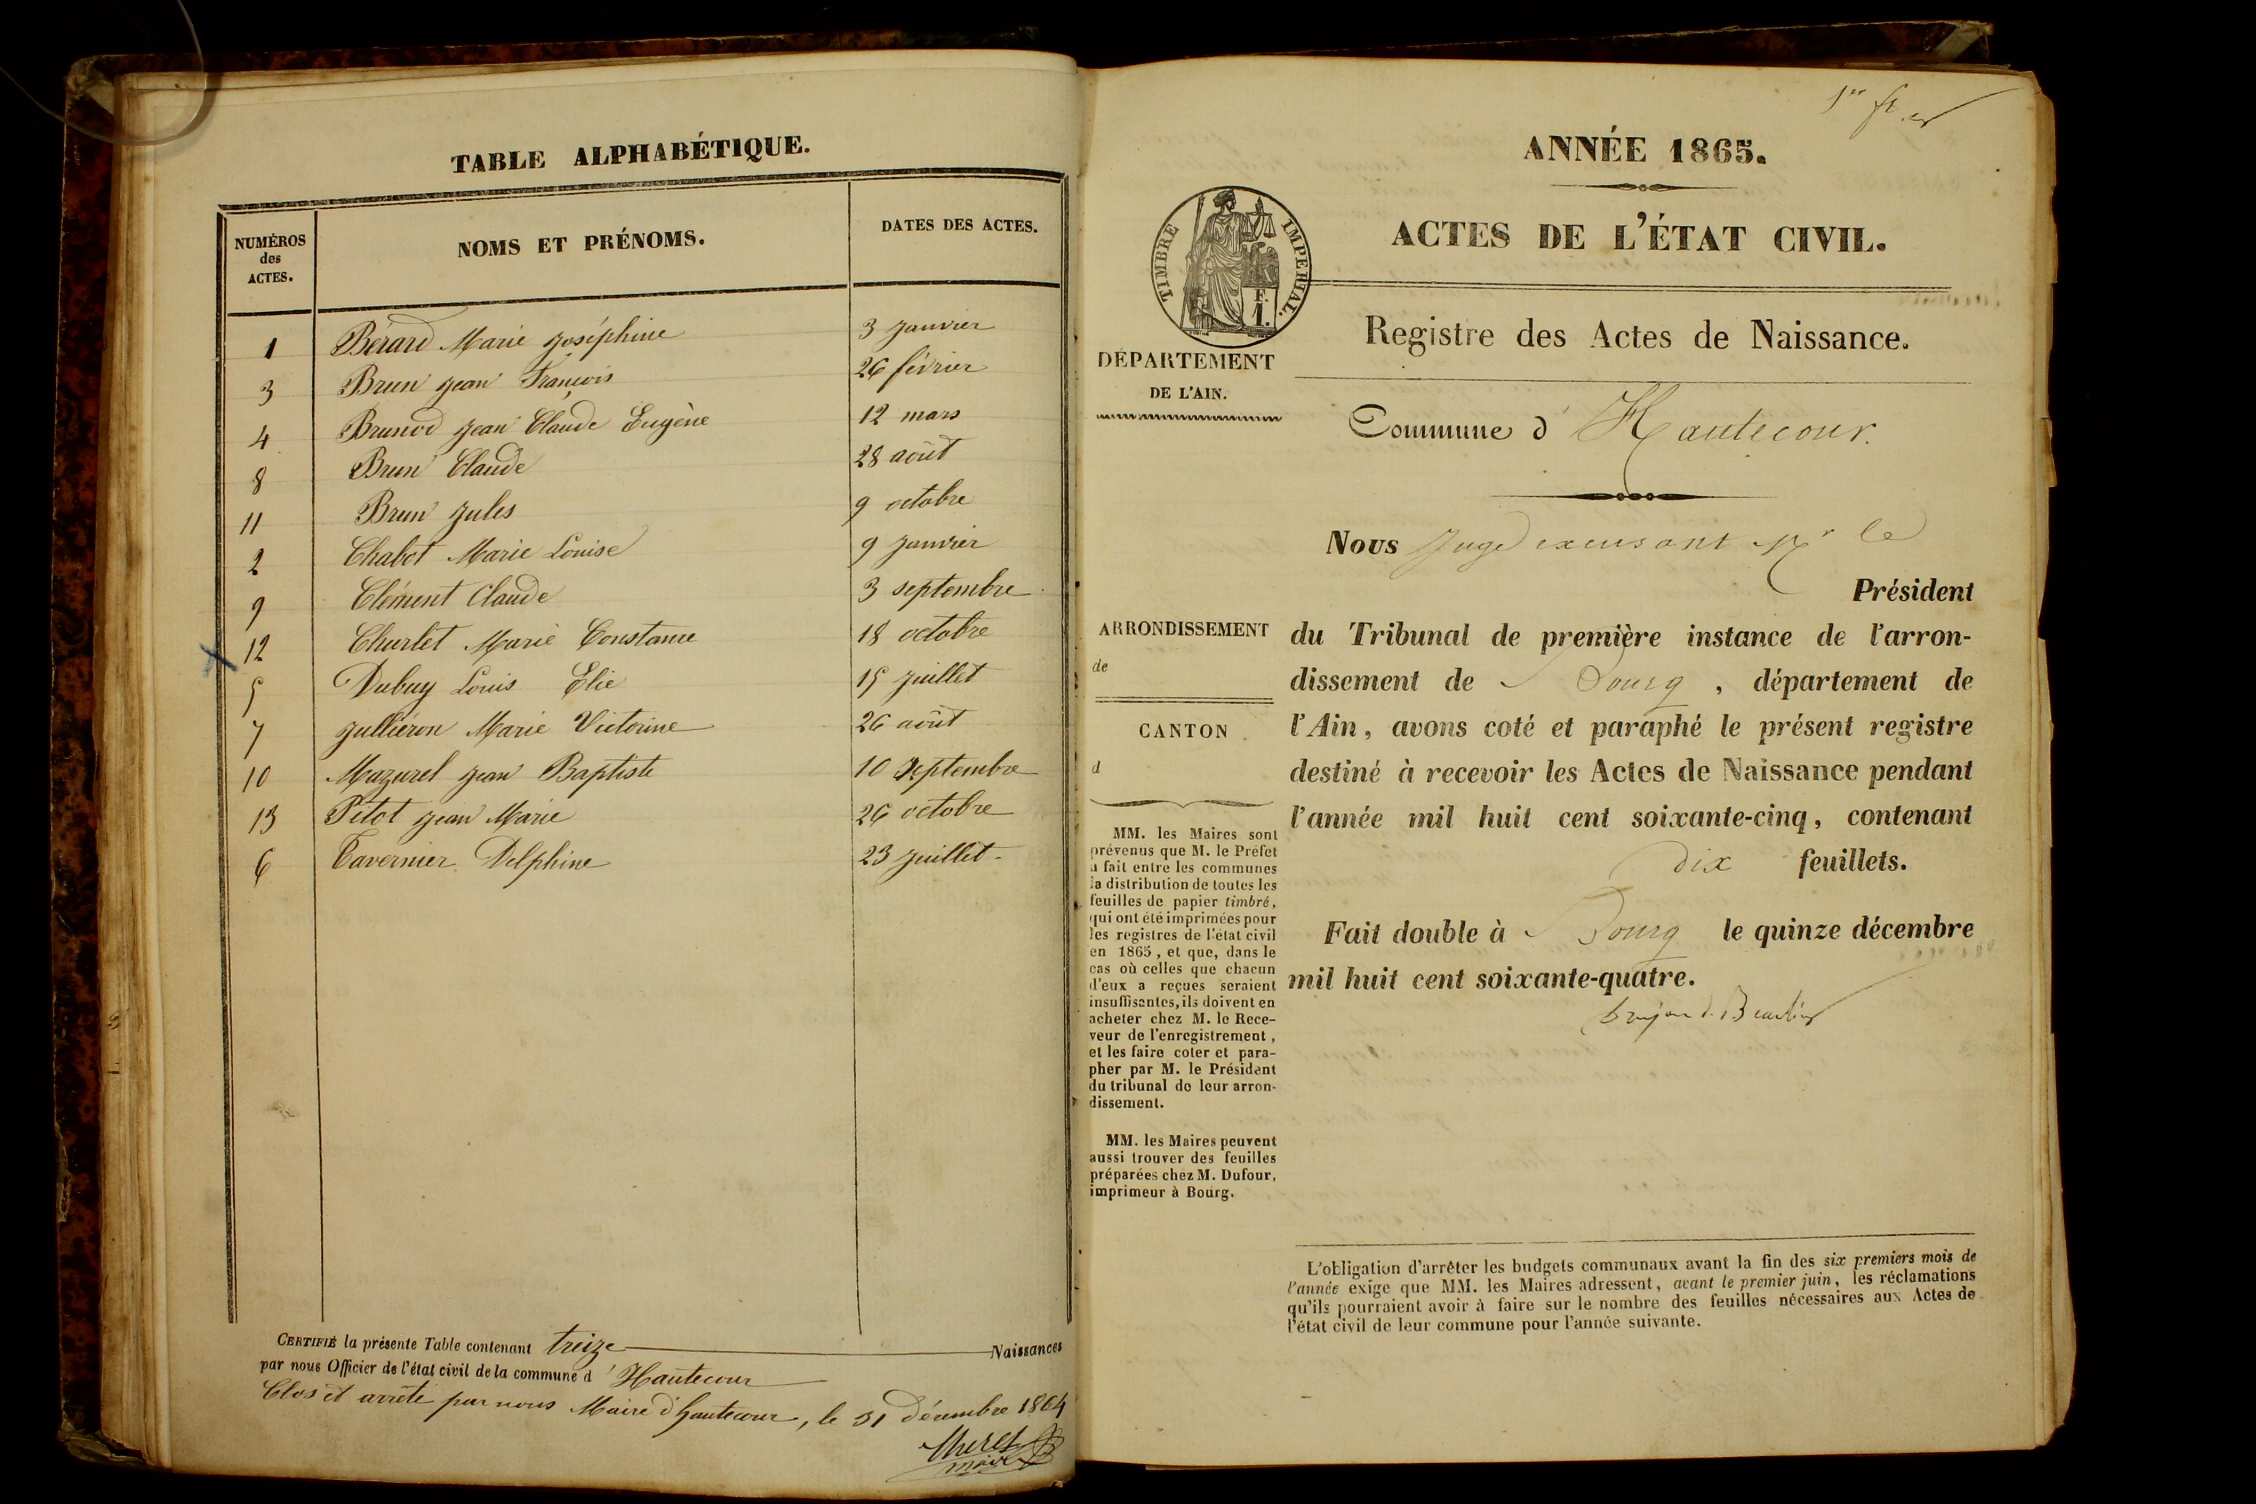 TABLE ALPHABÉTIQUE.
NUMÉROS
des
ACTES.
NOMS ET PRÉNOMS.
DATES DES ACTES.
1 Bérard Marie Joséphine 3 janvier
3 Brun Jean François 26 février
4 Brunod Jean Claude Eugène 12 mars
8 Brun Claude 28 août
11 Brun Jules 9 octobre
2 Chabot Marie Louise 9 janvier
9 Clément Claude 3 septembre
12 Churlet Marie Constance 18 octobre
5 Dubuy Louis Elie 15 juillet
7 Julliéron Marie Victorine 26 août
10 Mazurel Jean Baptiste 10 septembre
13 Pitot Jean Marie 26 octobre
6 Tavernier Delphine 23 juillet
CERTIFIÉ la présente Table contenant treize Naissances
par nous Officier de l'état civil de la commune d'Hautecour
Clos et arrêté par nous Maire d'hautecour, le 31 décembre 1864
maire
1er
ANNÉE 1865.
ACTES DE L'ÉTAT CIVIL.
TIMBRE IMPERIAL.
F.
1.
Registre des Actes de Naissance.
DÉPARTEMENT
DE L'AIN.
Commune d'Hautecour.
Nous Juge excusant Mr le
Président
du Tribunal de première instance de l'arron-
dissement de Bourg, département de
l'Ain, avons coté et paraphé le présent registre
destiné à recevoir les Actes de Naissance pendant
l'année mil huit cent soixante-cinq, contenant
dix feuillets.
Fait double à Bourg le quinze décembre
mil huit cent soixante-quatre.
ARRONDISSEMENT
de
CANTON
d
MM. les Maires sont
prévenus que M. le Préfet
a fait entre les communes
la distribution de toutes les
feuilles de papier timbré,
qui ont été imprimées pour
les registres de l'état civil
en 1865, et que, dans le
cas où celles que chacun
d'eux a reçues seraient
insuffisantes, ils doivent en
acheter chez M. le Rece-
veur de l'enregistrement,
et les faire coter et para-
pher par M. le Président
du tribunal de leur arron-
dissement.
MM. les Maires peuvent
aussi trouver des feuilles
préparées chez M. Dufour,
imprimeur à Bourg.
L'obligation d'arrêter les budgets communaux avant la fin des six premiers mois de
l'année exige que MM. les Maires adressent, avant le premier juin, les réclamations
qu'ils pourraient avoir à faire sur le nombre des feuilles nécessaires aux Actes de
l'état civil de leur commune pour l'année suivante.